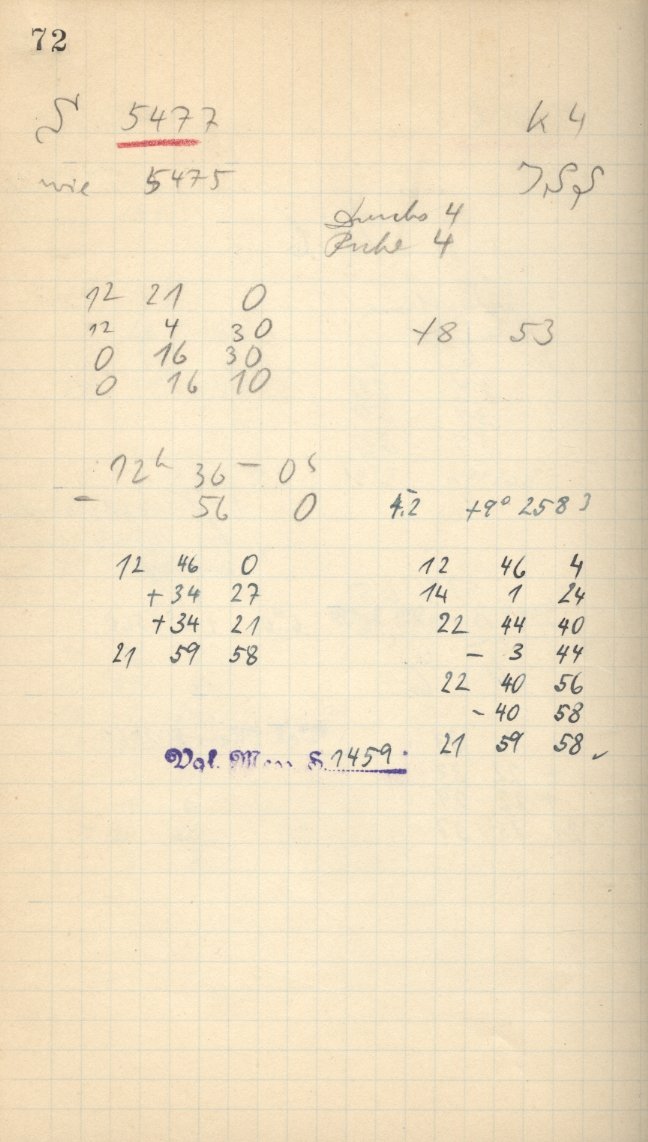 72
S 5477 K 4
wie 5475 J.S.S
Durchs 4
Ruhe 4
12 21 0
12 4 30 +8 53
0 16 30
0 16 10
12h 36m 0s
- 56 0
4.2 +9° 258 3
12 46 0 12 46 4
+34 27 14 1 24
+34 21 22 44 40
21 59 58 - 3 44
22 40 56
-40 58
Vgl. Mess S. 1459. 21 59 58